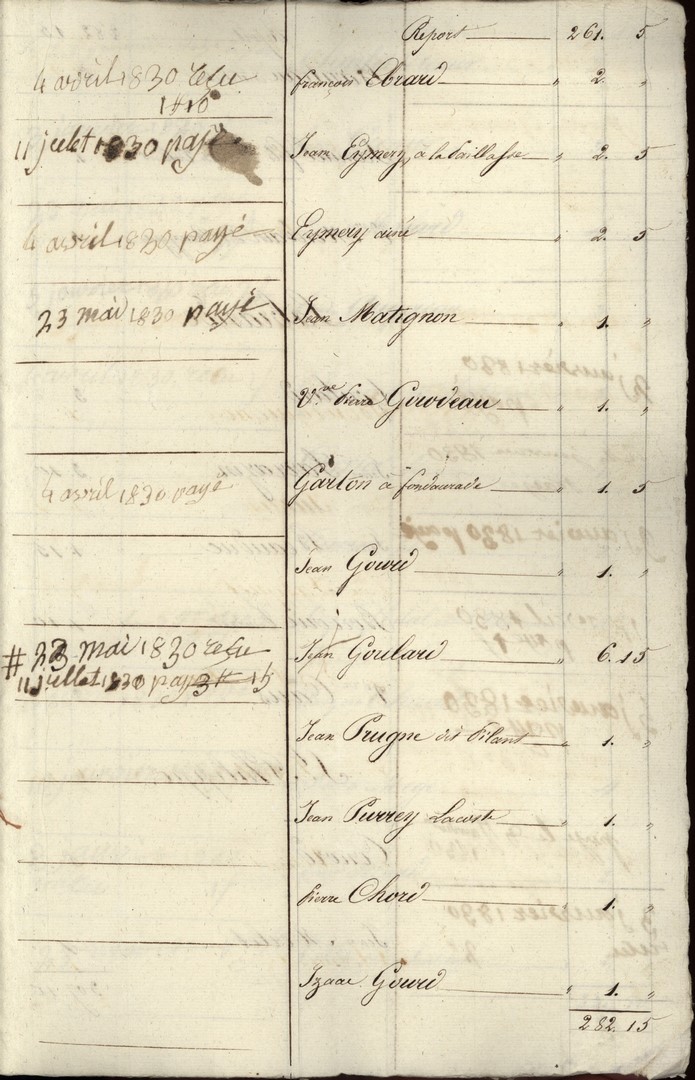 Report 261. 5
4 avril 1830 reçu françois Ebrard " 2. "
1# 10
11 juilet 1830 payé Jean Eymery, à la Paillasse " 2. 5
4 avril 1830 payé Eymery ainé " 2. 5
23 mai 1830 payé Jean Matignon " 1. "
V.ve Pierre Girodeau " 1. "
4 avril 1830 payé Garton à fondaurade " 1. 5
Jean Gourd " 1. "
# 23 mai 1830 reçu Jean Goulard " 6. 15
11 juillet 1830 payé 3# 15
Jean Prugne dit " 1. "
Jean Purrey Lacoste " 1. "
Pierre Chord " 1. "
Izaac Gourd " 1. "
282. 15